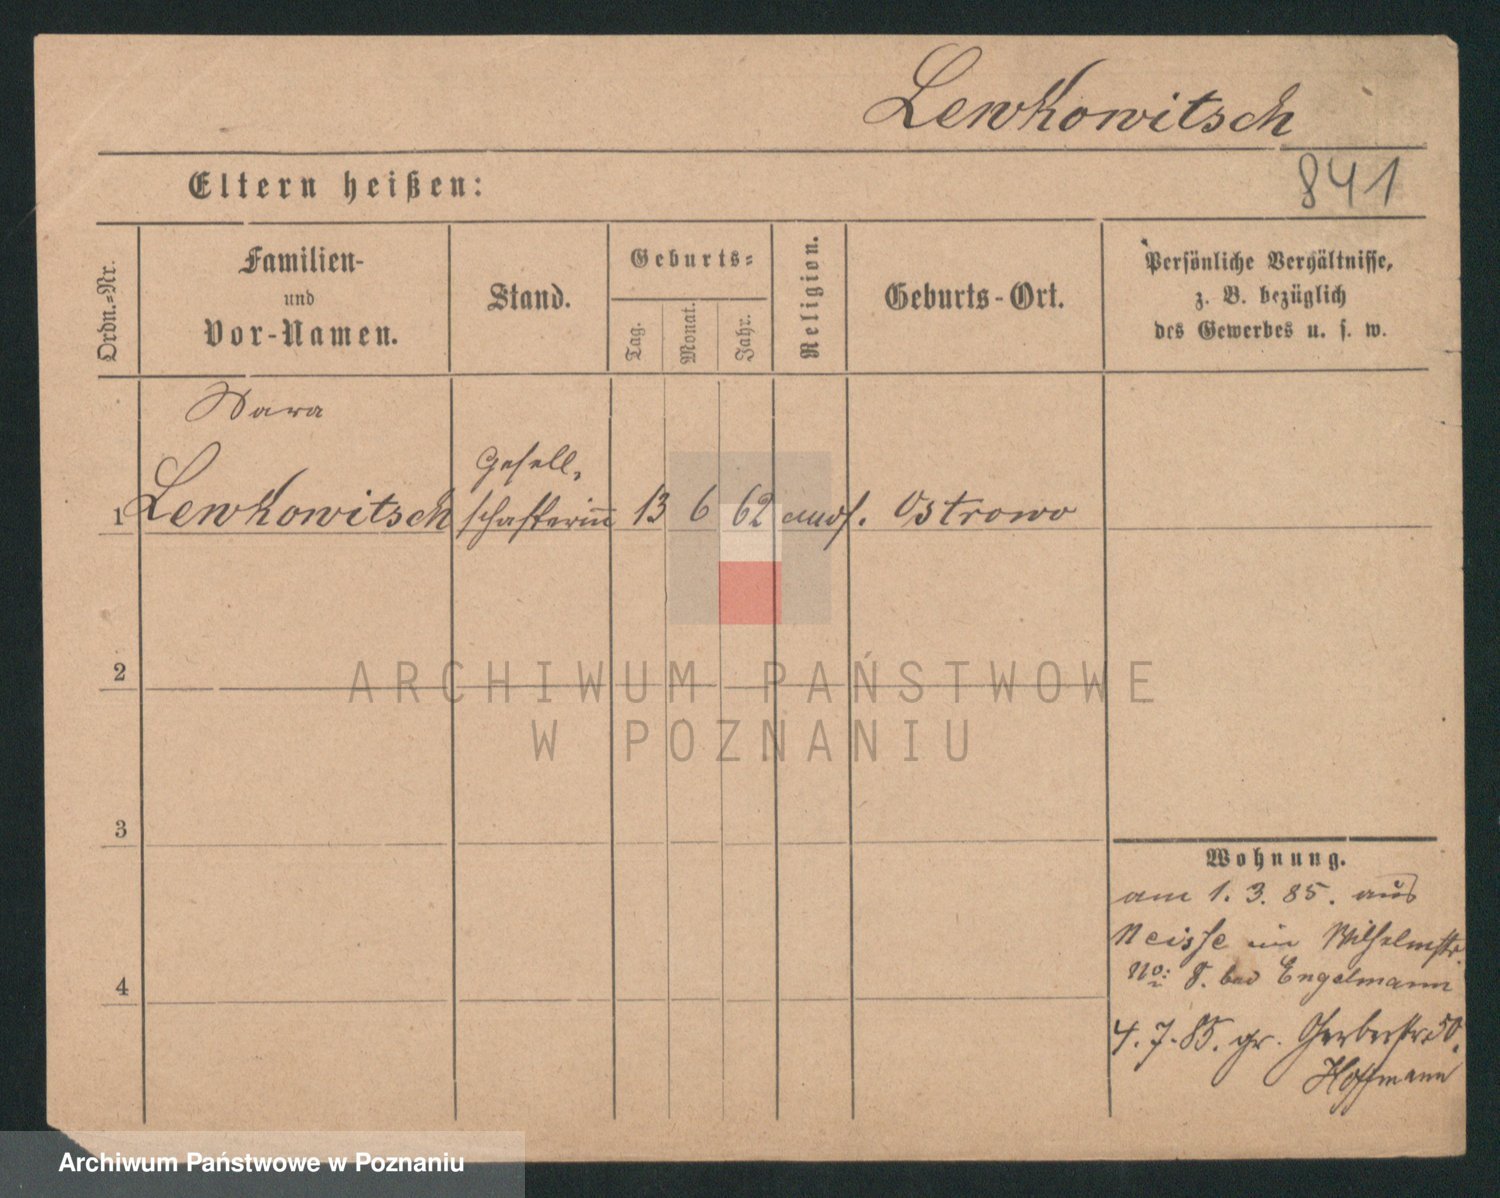 Lewkowitsch
841
Eltern heißen:
Ordn.-Nr.
Familien-
und
Vor-Namen.
Stand.
Geburts-
Tag.
Monat.
Jahr.
Religion.
Geburts-Ort.
Persönliche Verhältnisse,
z. B. bezüglich
des Gewerbes u. s. w.
Gesell-
1 Lewkowitsch schafterin 13 6 62 Ostrowo
2
3
4
Wohnung.
am 1. 3. 85. aus
Neisse in Wilhelmstr.
No: 8. bei Engelmann
4. 7. 85. gr. Gerberstr. 50.
Hoffmann
ARCHIWUM PAŃSTWOWE
W POZNANIU
Archiwum Państwowe w Poznaniu